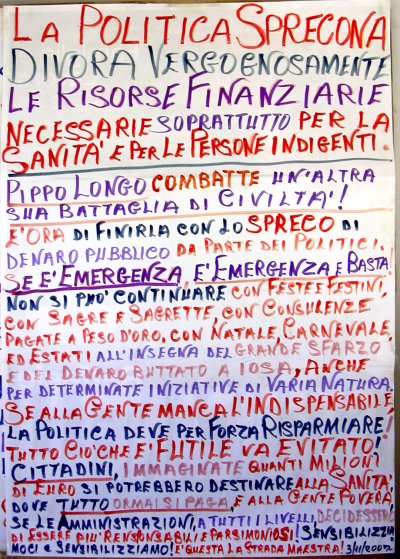 LA POLITICA SPRECONA
DIVORA VERGOGNOSAMENTE
LE RISORSE FINANZIARIE
NECESSARIE SOPRATTUTTO PER LA
SANITA' E PER LE PERSONE INDIGENTI.
PIPPO LONGO COMBATTE UN'ALTRA
SUA BATTAGLIA DI CIVILTA'!
E'ORA DI FINIRLA CON LO SPRECO DI
DENARO PUBBLICO DA PARTE DEI POLITICI.
SE E'EMERGENZA, E'EMERGENZA E BASTA.
NON SI PUO' CONTINUARE CON FESTE E FESTINI,
CON SAGRE E SAGRETTE, CON CONSULENZE
PAGATE A PESO D'ORO, CON NATALE, CARNEVALE,
ED ESTATI ALL'INSEGNA DEL GRANDE SFARZO
E DEL DENARO BUTTATO A IOSA, ANCHE
PER DETERMINATE INIZIATIVE DI VARIA NATURA.
SE ALLA GENTE MANCA L'INDISPENSABILE,
LA POLITICA DEVE PER FORZA RISPARMIARE!
TUTTO CIO' CHE E' FUTILE VA EVITATO!
CITTADINI, IMMAGINATE QUANTI MILIONI
DI EURO SI POTREBBERO DESTINARE ALLA SANITA',
DOVE TUTTO ORMAI SI PAGA, E ALLA GENTE POVERA,
SE LE AMMINISTRAZIONI, A TUTTI I LIVELLI, DECIDESSERO
DI ESSERE PIU' RESPONSABILI E PARSIMONIOSI! SENSIBILIZZIA
MOCI E SENSIBILIZZIAMO! E' QUESTA LA STRADA MAESTRA! 3/11/2007